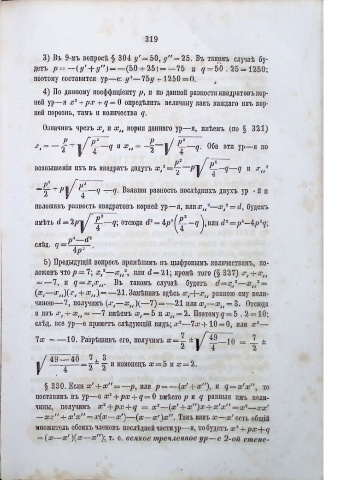 319
3) Въ 9-мъ вопросѣ § 304 y'=50, y''=25. Въ такомъ случаѣ бу-
детъ p=—(y'+y'')=—(50+25)=—75 и q=50 . 25=1250;
поэтому составится ур—е: y²—75y+1250=0.
4) По данному коэффиціенту p, и по данной разности квадратовъ кор-
ней ур—я x²+px+q=0 опредѣлить величину какъ каждаго изъ кор-
ней порознь, такъ и количества q.
Означивъ чрезъ x, и x,, корни даннаго ур—я, имѣемъ (по § 321)
x,=—p/2+√(p²/4—q) и x,,=—p/2—√(p²/4—q). Оба эти ур—я по
возвышеніи ихъ въ квадратъ дадутъ x,²=p²/2—p√(p²/4—q)—q и x,,²
=p²/2+p√(p²/4—q)—q. Взявши разность послѣднихъ двухъ ур - й и
положивъ разность квадратовъ корней ур—я, или x,,²—x,²=d, будемъ
имѣть d=2p√(p²/4—q); отсюда d²=4p²(p²/4—q), или d²=p⁴—4p²q;
слѣд. q=(p⁴—d²)/4p².
5) Предыдущій вопросъ примѣнимъ къ цыфровымъ количествамъ, по-
ложивъ что p=7; x,²—x,,², или d=21; кромѣ того (§ 327) x,+x,,
=—7, и q=x,x,,. Въ такомъ случаѣ будетъ d=x,²—x,,²=
(x,—x,,)(x,+x,,)=—21. Замѣнивъ здѣсь x,+x,, равною ему вели-
чиною—7, получимъ (x,—x,,)(—7)=—21 или x,—x,,=3. Отсюда
и изъ x,+x,,=—7 имѣемъ x,=5 и x,,=2. Поэтому q=5 . 2=10;
слѣд. все ур—е приметъ слѣдующій видъ; x²—7x+10=0, или x²—
7x=—10. Разрѣшивъ его, получимъ x=7/2±√(49/4—10)=7/2±
√((49—40)/4)=7/2±3/2 и наконецъ x=5 и x=2.
§ 330. Если x'+x''=—p, или p=—(x'+x''), и q=x'x'', то
поставивъ въ ур—е x²+px+q=0 вмѣсто p и q равныя имъ вели-
чины, получимъ x²+px+q=x²—(x'+x'')x+x'x''=x²—xx'
—xx''+x'x''=x(x—x')—(x—x')x''. Такъ какъ x—x' есть общій
множитель обоихъ членовъ послѣдней части ур—я, то будетъ x²+px+q
=(x—x')(x—x''); т. е. всякое трехчленное ур—е 2-ой степе-